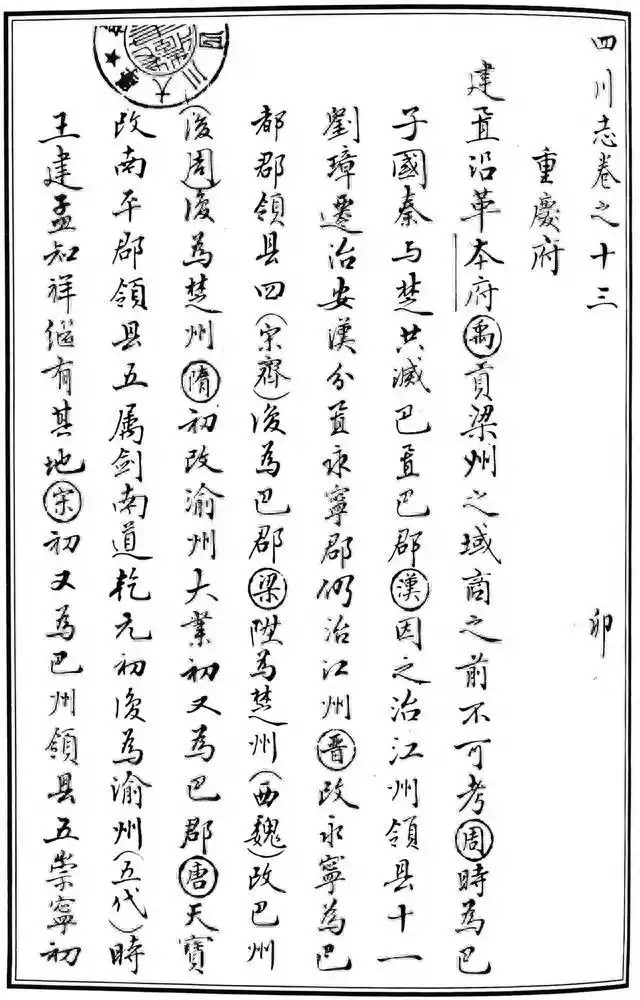 四川志卷之十三 卯
重慶府
建置沿革本府禹貢梁州之域商之前不可考周時為巴
子國秦与楚共滅巴置巴郡漢因之治江州領县十一
劉璋遷治安漢分置永寧郡仍治江州晋改永寧為巴
都郡領县四(宋齊)後為巴郡梁陞為楚州(西魏)改巴州
(後周)復為楚州隋初改渝州大業初又為巴郡唐天寶
改南平郡領县五属剑南道乾元初復為渝州(五代)時
王建孟知祥継有其地宋初又為巴州領县五崇寧初